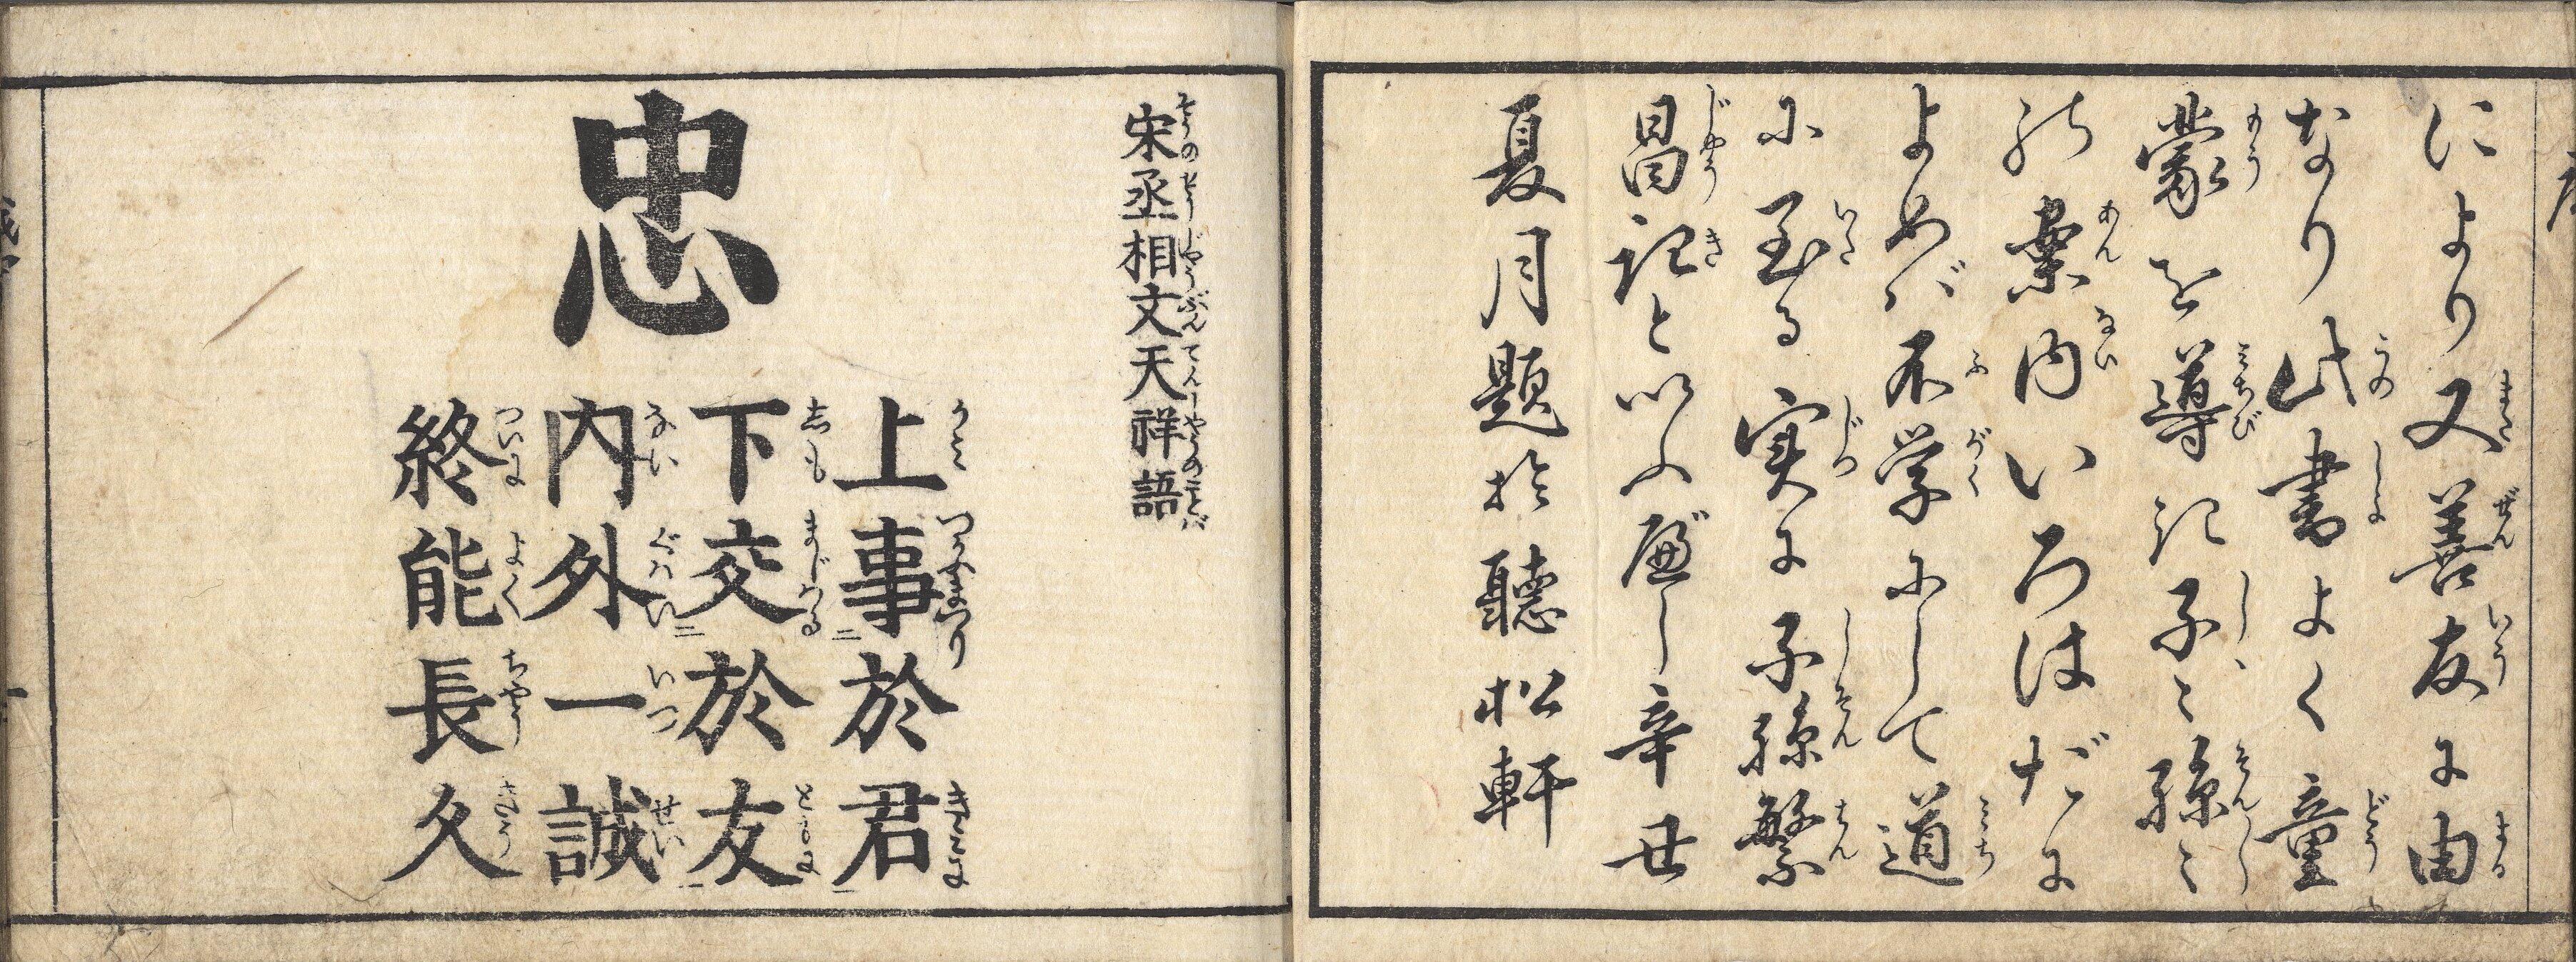 により又善友に由
なり此書よく童
蒙を導き子〻孫〻
の案内いろはだに
よめバ不学にして道
に至る実に子孫繁
昌記といふべし辛丑
夏月題於聴松軒
宋丞相文天祥語
忠
上事於君
下交於友
内外一誠
終能長久